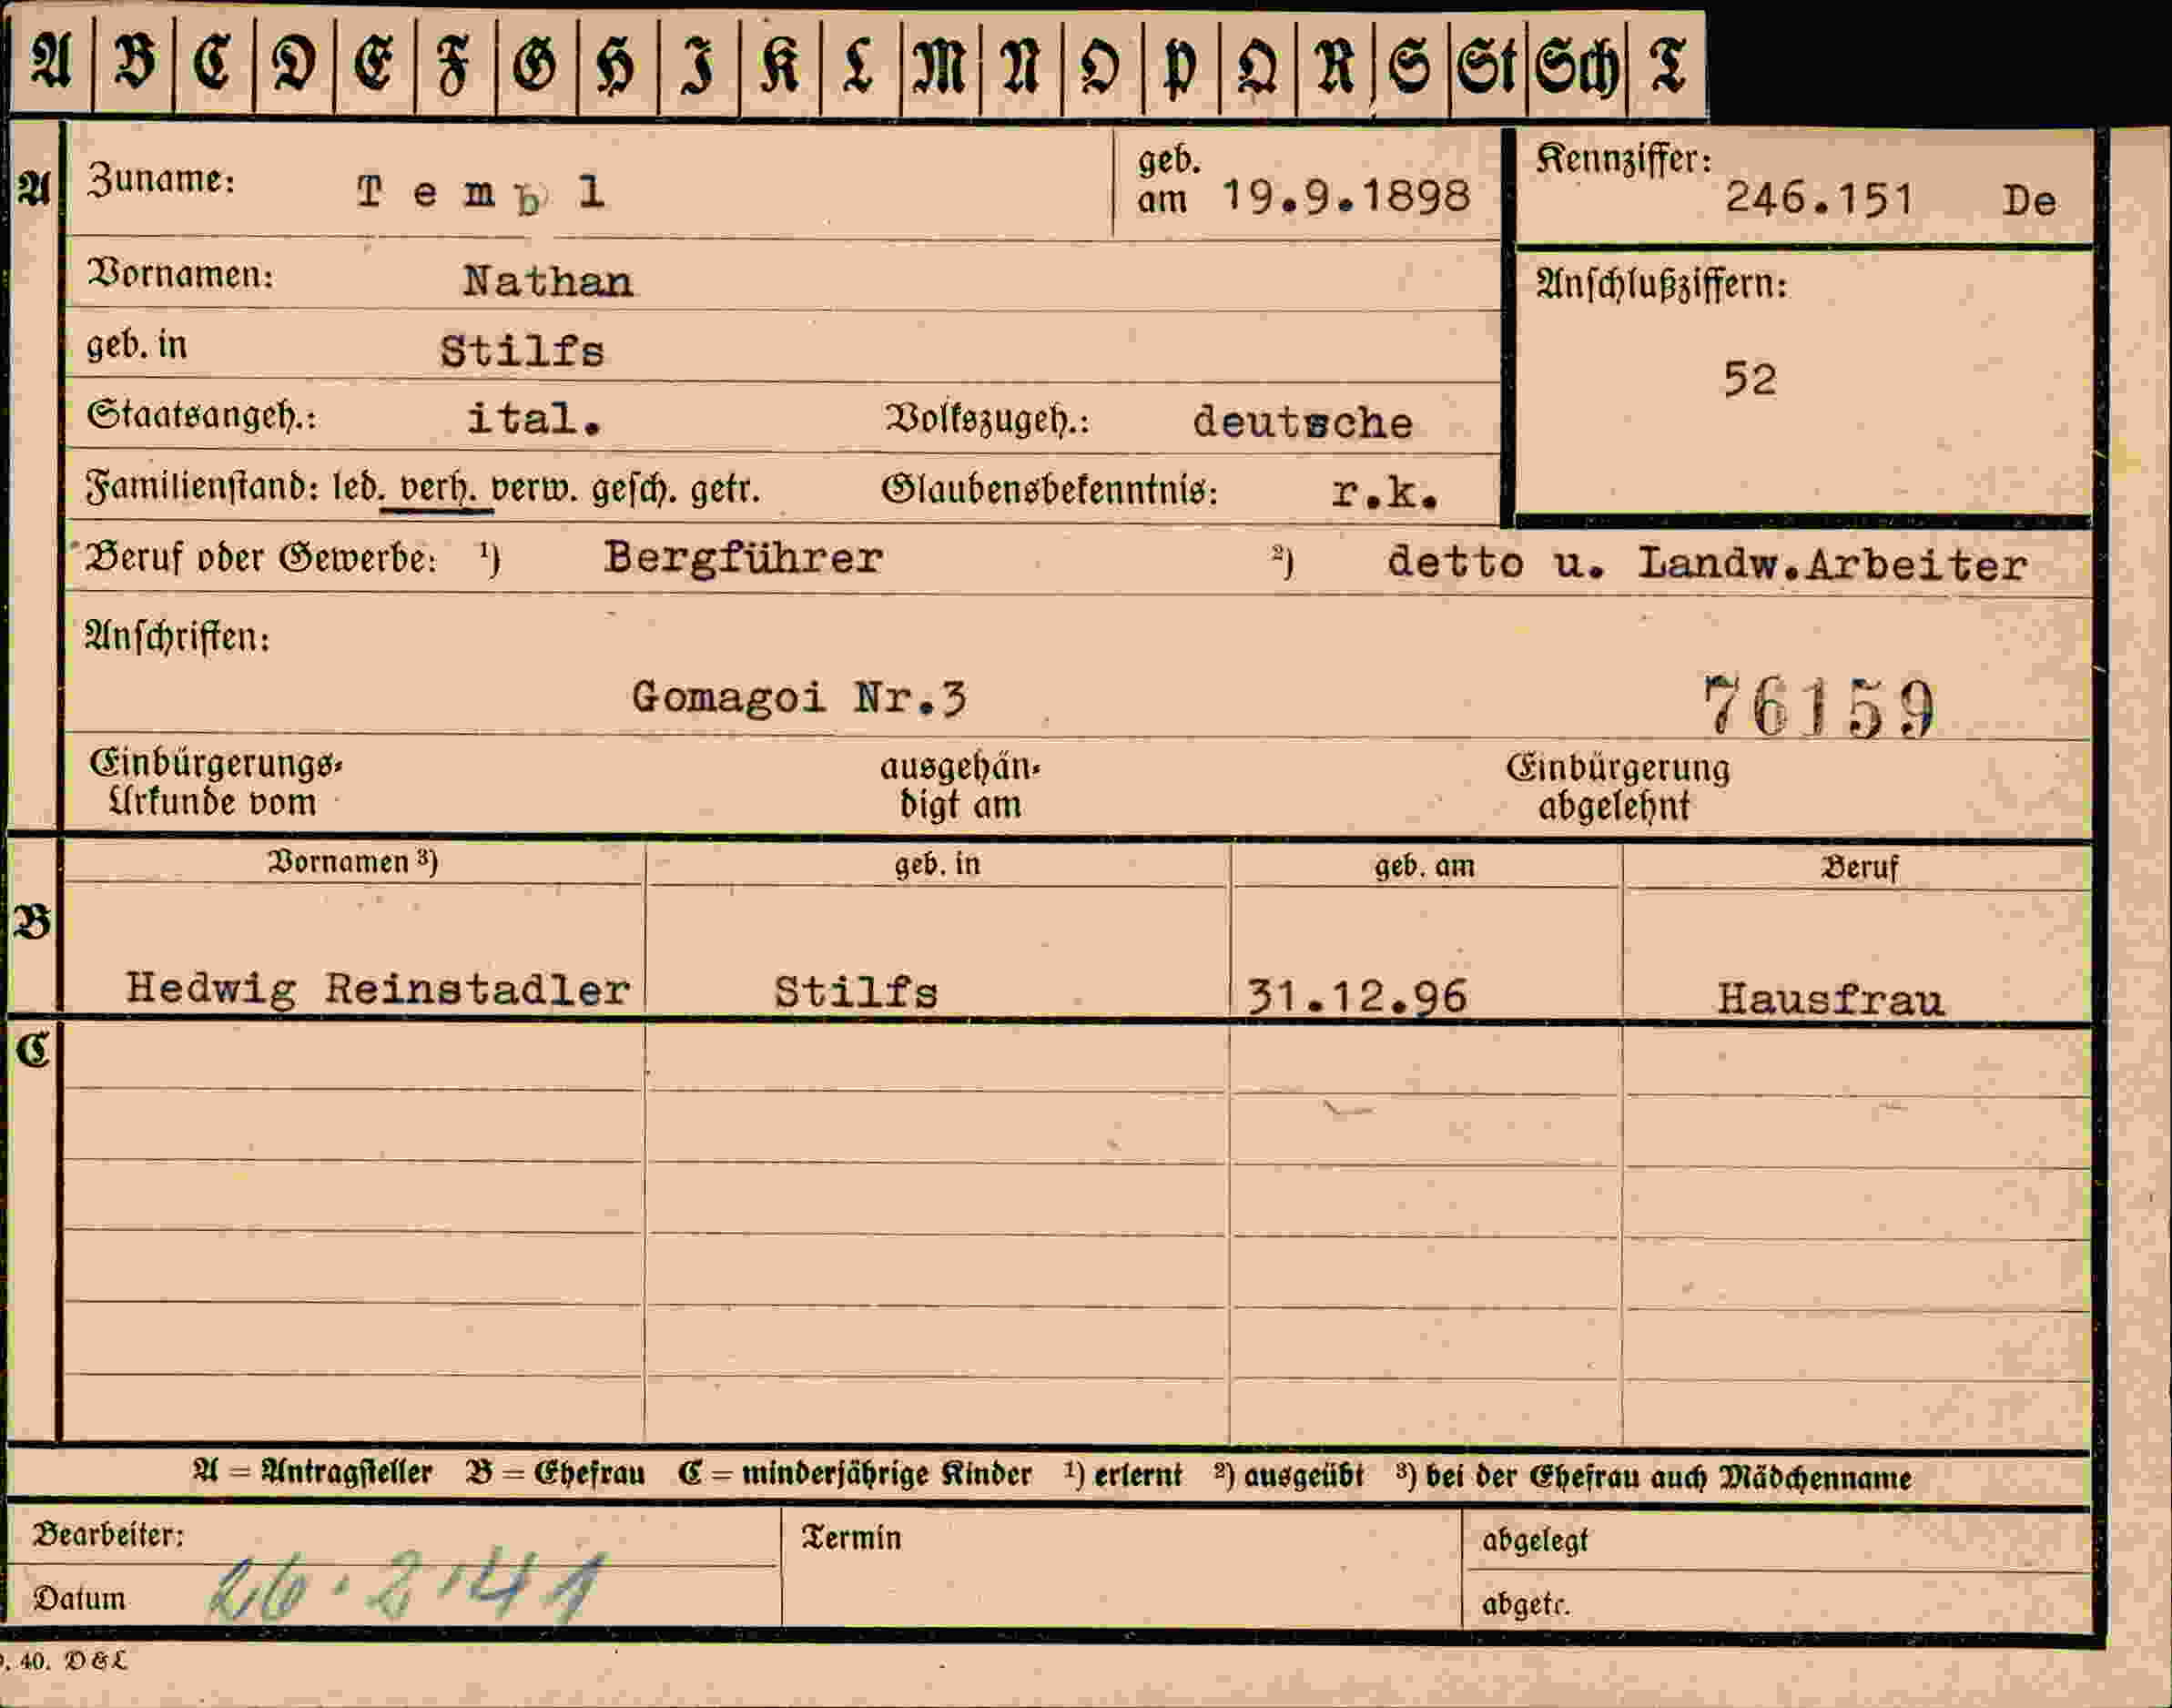 A B C D E F G H I K L M N O P Q R S St Sch T
A Zuname: T e m b l geb. am 19.9.1898 Kennziffer: 246.151 De
Vornamen: Nathan Anschlußziffern:
geb. in Stilfs 52
Staatsangeh.: ital. Volkszugeh.: deutsche
Familienstand: led. verh. verw. gesch. getr. Glaubensbekenntnis: r.k.
Beruf oder Gewerbe: ¹) Bergführer ²) detto u. Landw.Arbeiter
Anschriften:
Gomagoi Nr.3 76159
Einbürgerungs- ausgehän- Einbürgerung
Urkunde vom digt am abgelehnt
Vornamen ³) geb. in geb. am Beruf
B
Hedwig Reinstadler Stilfs 31.12.96 Hausfrau
C
A = Antragsteller B = Ehefrau C = minderjährige Kinder ¹) erlernt ²) ausgeübt ³) bei der Ehefrau auch Mädchenname
Bearbeiter: Termin abgelegt
Datum 26.2.41 abgetr.
40. D&L